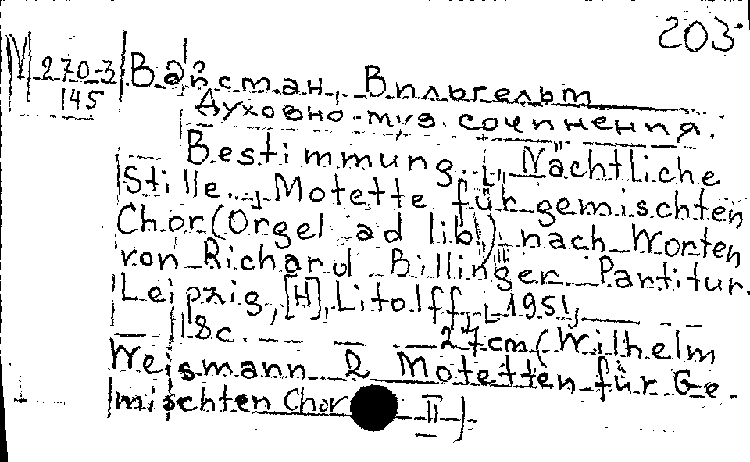 203
M 270-3 Вайсман, Вильгельм
145
Духовно-муз. сочинения.
Bestimmung. Nächtliche
Stille. Motette für gemischten
Chor (Orgel ad lib) nach Worten
von Richard Billinger. Partitur.
Leipzig, [H], Litolff, 1951,
18c. 27cm (Wilhelm
Weismann 2 Motetten für Ge-
mischten Chor II).